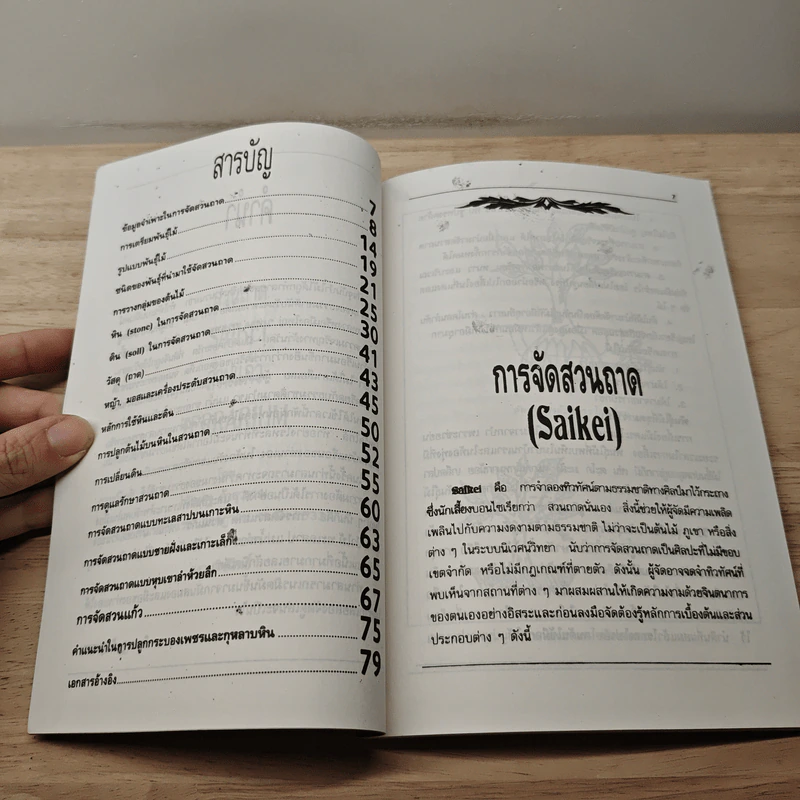 สารบัญ
ข้อมูลจำเพาะในการจัดสวนถาด 7
การเตรียมพันธุ์ไม้ 8
รูปแบบพันธุ์ไม้ 14
ชนิดของพันธุ์ที่นำมาใช้จัดสวนถาด 19
การวางกลุ่มของต้นไม้ 21
หิน (stone) ในการจัดสวนถาด 25
ดิน (soil) ในการจัดสวนถาด 30
วัสดุ (ถาด) 41
หญ้า, มอสและเครื่องประดับสวนถาด 43
หลักการใช้หินและดิน 45
การปลูกต้นไม้บนหินในสวนถาด 50
การเปลี่ยนดิน 52
การดูแลรักษาสวนถาด 55
การจัดสวนถาดแบบทะเลสาปบนเกาะหิน 60
การจัดสวนถาดแบบชายฝั่งและเกาะเล็กๆ 63
การจัดสวนถาดแบบหุบเขาลำห้วยลึก 65
การจัดสวนแก้ว 67
คำแนะนำในการปลูกกระบองเพชรและกุหลาบหิน 75
เอกสารอ้างอิง 79
การจัดสวนถาด
(Saikei)
Saikei คือ การจำลองทิวทัศน์ตามธรรมชาติทางศิลป์มาไว้กระถาง
ซึ่งนักเลี้ยงบอนไซเรียกว่า สวนถาดนั่นเอง สิ่งนี้ช่วยให้ผู้จัดมีความเพลิด
เพลินไปกับความงดงามตามธรรมชาติ ไม่ว่าจะเป็นต้นไม้ ภูเขา หรือสิ่ง
ต่าง ๆ ในระบบนิเวศนวิทยา นับว่าการจัดสวนถาดเป็นศิลปะที่ไม่มีขอบ
เขตจำกัด หรือไม่มีกฎเกณฑ์ที่ตายตัว ดังนั้น ผู้จัดอาจจดจำทิวทัศน์ที่
พบเห็นจากสถานที่ต่าง ๆ มาผสมผสานให้เกิดความงามด้วยจินตนาการ
ของตนเองอย่างอิสระและก่อนลงมือจัดต้องรู้หลักการเบื้องต้นและส่วน
ประกอบต่าง ๆ ดังนี้